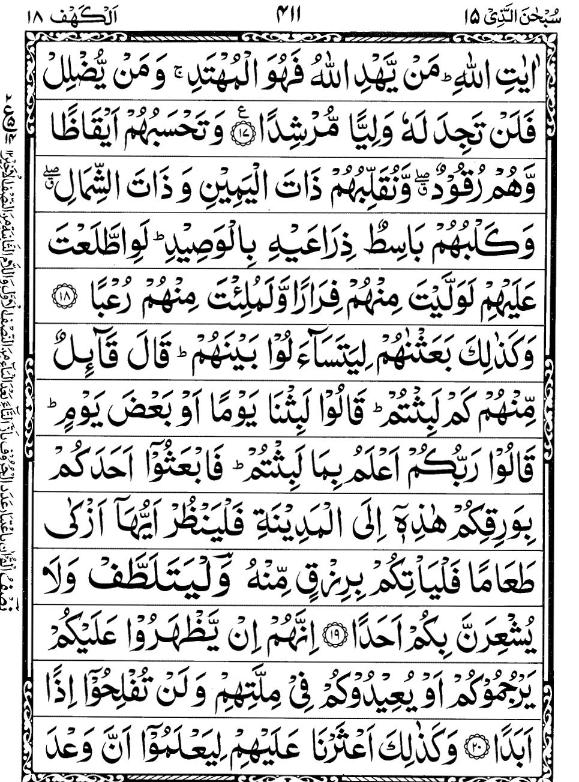 سُبْحٰنَ الَّذِيْٓ ١٥ ٤١١ اَلْكَهْف ١٨
اٰيٰتِ اللّٰهِ ؕ مَنْ يَّهْدِ اللّٰهُ فَهُوَ الْمُهْتَدِ ۚ وَمَنْ يُّضْلِلْ
فَلَنْ تَجِدَ لَهٗ وَلِيًّا مُّرْشِدًا ﴿١٧﴾ ع وَتَحْسَبُهُمْ اَيْقَاظًا
وَّهُمْ رُقُوْدٌ ۖ ق وَّنُقَلِّبُهُمْ ذَاتَ الْيَمِيْنِ وَذَاتَ الشِّمَالِ ۖ ق
وَكَلْبُهُمْ بَاسِطٌ ذِرَاعَيْهِ بِالْوَصِيْدِ ؕ لَوِ اطَّلَعْتَ
عَلَيْهِمْ لَوَلَّيْتَ مِنْهُمْ فِرَارًا وَّلَمُلِئْتَ مِنْهُمْ رُعْبًا ﴿١٨﴾
وَكَذٰلِكَ بَعَثْنٰهُمْ لِيَتَسَآءَلُوْا بَيْنَهُمْ ؕ قَالَ قَآئِلٌ
مِّنْهُمْ كَمْ لَبِثْتُمْ ؕ قَالُوْا لَبِثْنَا يَوْمًا اَوْ بَعْضَ يَوْمٍ ؕ
قَالُوْا رَبُّكُمْ اَعْلَمُ بِمَا لَبِثْتُمْ ؕ فَابْعَثُوْٓا اَحَدَكُمْ
بِوَرِقِكُمْ هٰذِهٖٓ اِلَى الْمَدِيْنَةِ فَلْيَنْظُرْ اَيُّهَآ اَزْكٰى
طَعَامًا فَلْيَاْتِكُمْ بِرِزْقٍ مِّنْهُ وَلْيَتَلَطَّفْ وَلَا
يُشْعِرَنَّ بِكُمْ اَحَدًا ﴿١٩﴾ اِنَّهُمْ اِنْ يَّظْهَرُوْا عَلَيْكُمْ
يَرْجُمُوْكُمْ اَوْ يُعِيْدُوْكُمْ فِيْ مِلَّتِهِمْ وَلَنْ تُفْلِحُوْٓا اِذًا
اَبَدًا ﴿٢٠﴾ وَكَذٰلِكَ اَعْثَرْنَا عَلَيْهِمْ لِيَعْلَمُوْٓا اَنَّ وَعْدَ